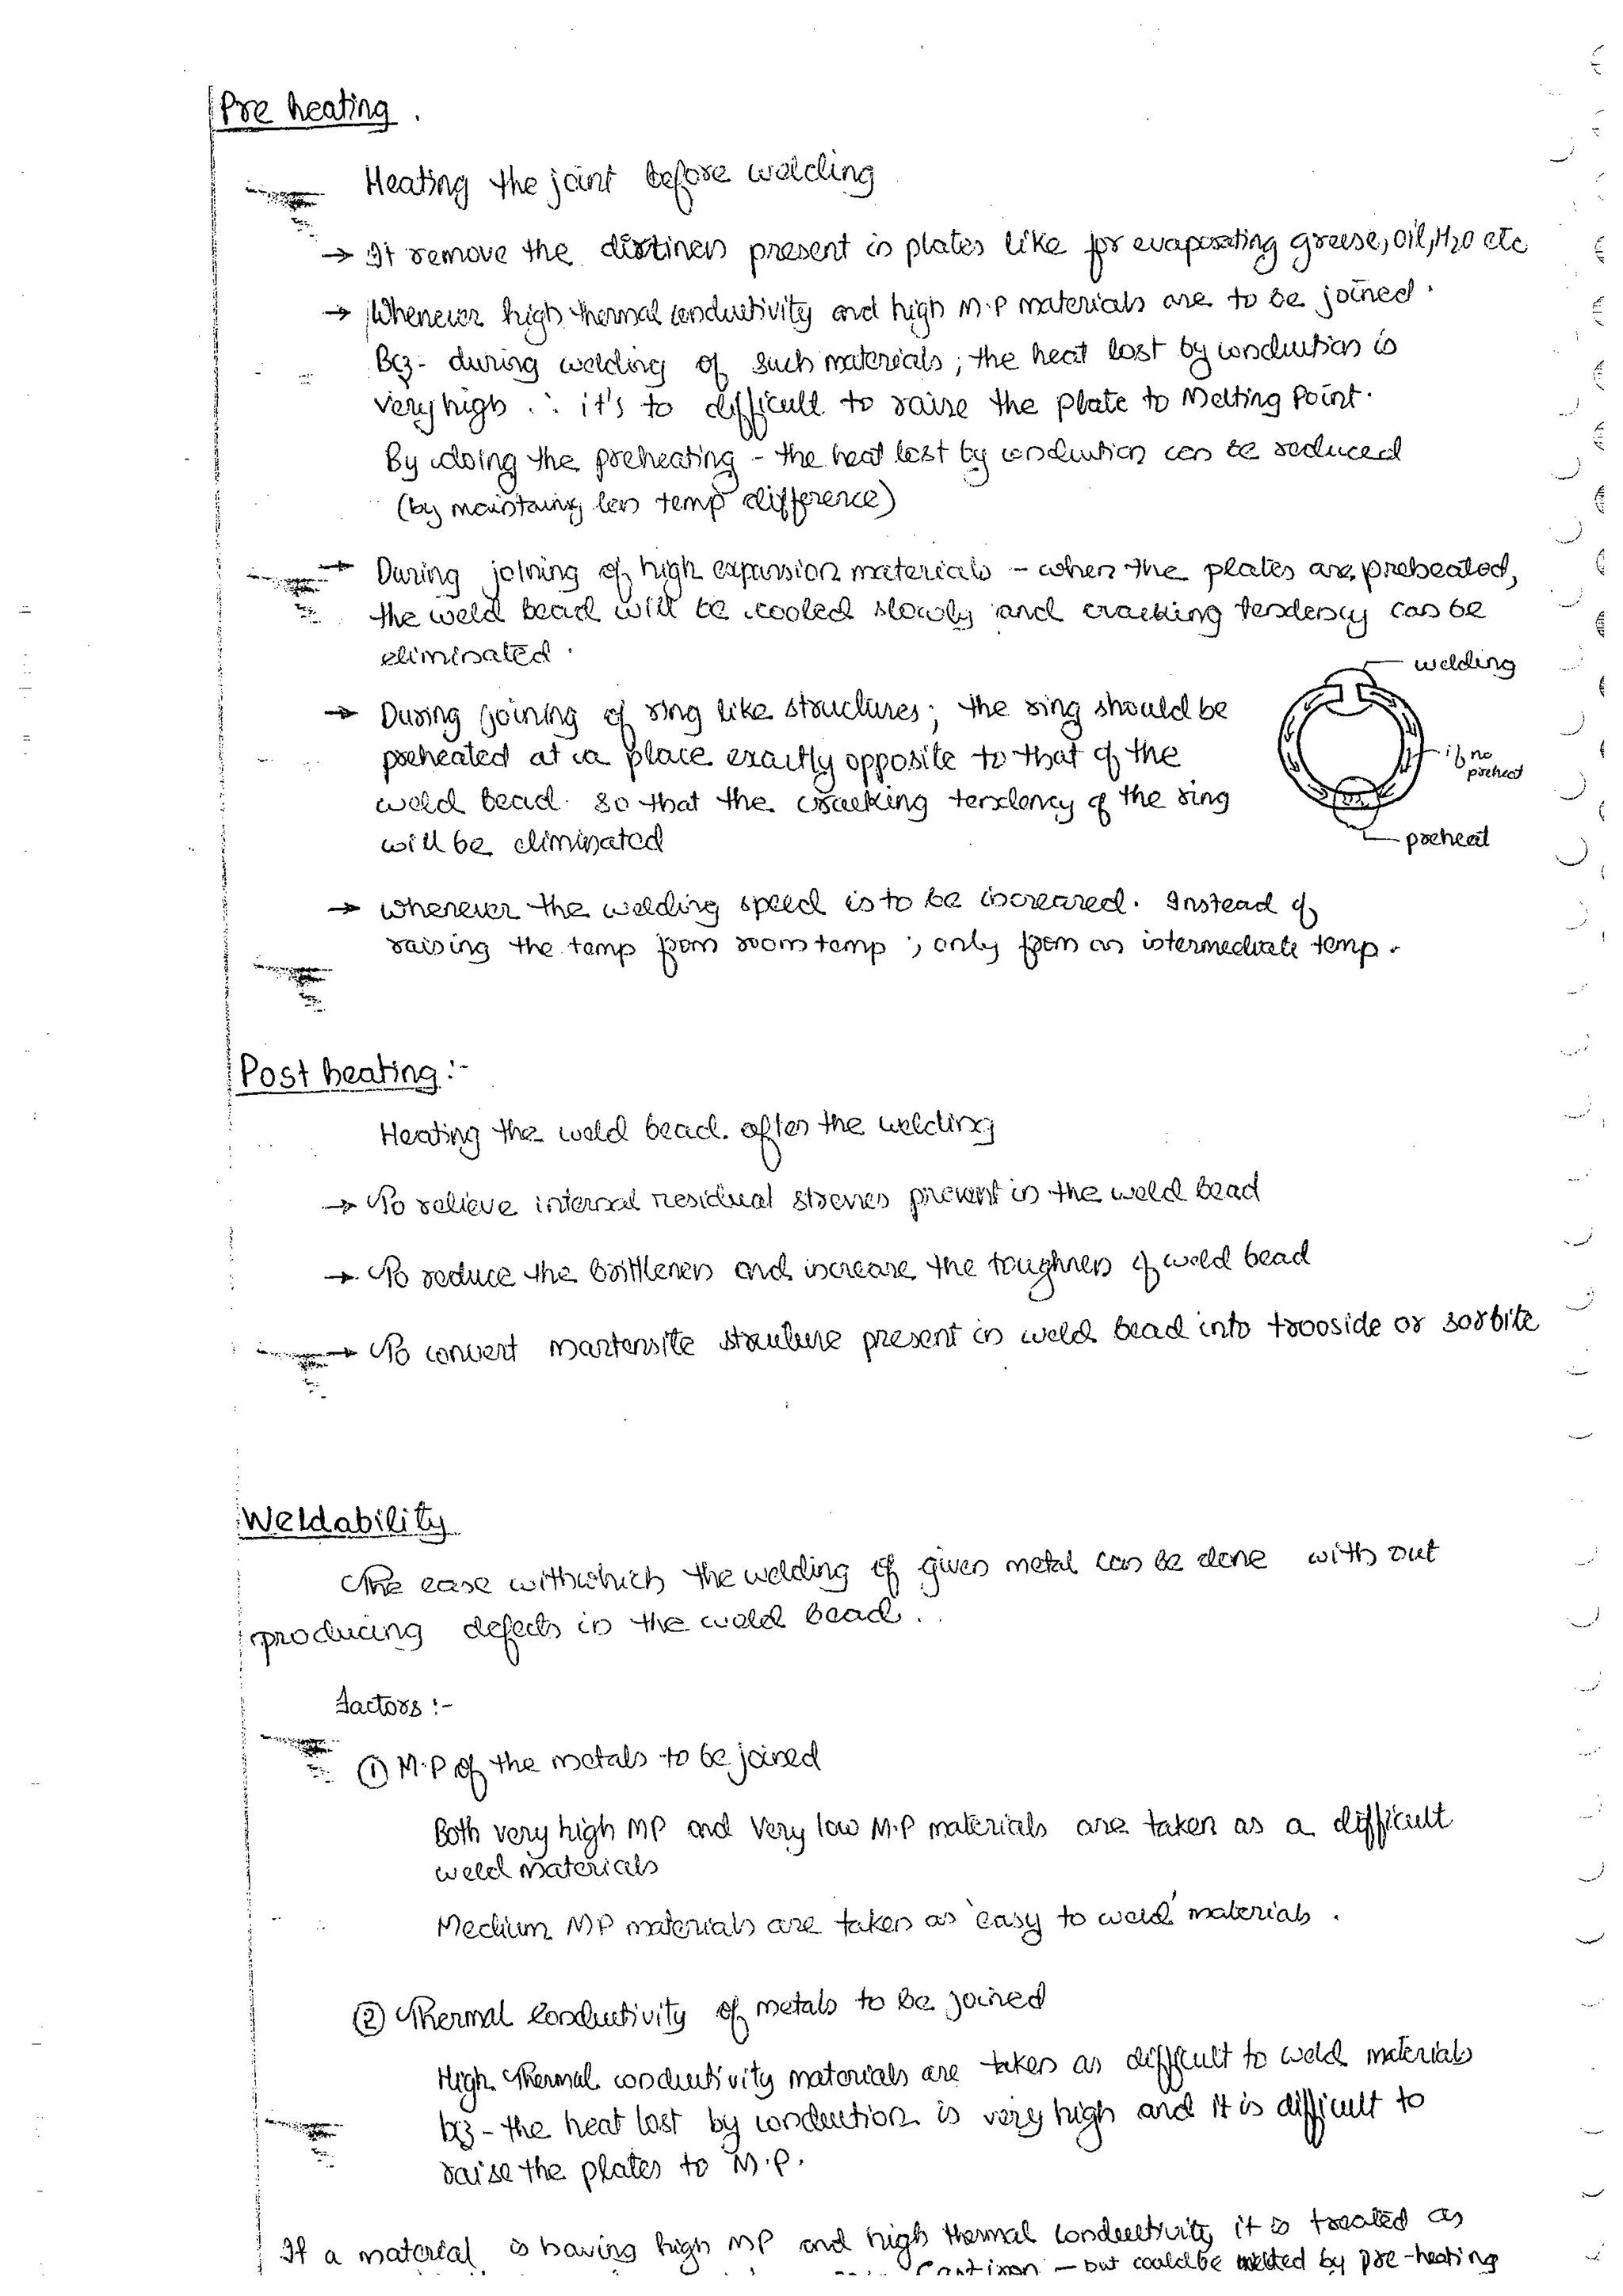 Pre heating.
Heating the joint before welding
→ It remove the dirtiness present in plates like for evaporating greese, oil, H2O etc
→ Whenever high thermal conductivity and high M.P materials are to be joined.
Bcz- during welding of such materials, the heat lost by conduction is
very high. ∴ it's to difficult to raise the plate to Melting Point.
By doing the preheating - the heat lost by conduction can be reduced
(by maintaining less temp difference)
→ During joining of high expansion materials - when the plates are preheated,
the weld bead will be cooled slowly and cracking tendency can be
eliminated.
welding
→ During joining of ring like structures; the ring should be
preheated at a place exactly opposite to that of the
if no
preheat
weld bead. so that the cracking tendency of the ring
will be eliminated
preheat
→ whenever the welding speed is to be increased. Instead of
raising the temp from room temp; only from an intermediate temp.
Post heating:-
Heating the weld bead after the welding
→ To relieve internal residual stresses present in the weld bead
→ To reduce the brittleness and increase the toughness of weld bead
→ To convert martensite structure present in weld bead into trooside or sorbite
Weldability
The ease with which the welding of given metal can be done with out
producing defects in the weld bead.
Factors:-
① M.P of the metals to be joined
Both very high MP and Very low M.P materials are taken as a difficult
weld materials
Medium MP materials are taken as 'easy to weld' materials.
② Thermal Conductivity of metals to be joined
High Thermal conductivity materials are taken as difficult to weld materials
bcz - the heat lost by conduction is very high and it is difficult to
raise the plates to M.P.
If a material is having high MP and high thermal conductivity it is treated as
Cast iron - but could be melted by pre-heating